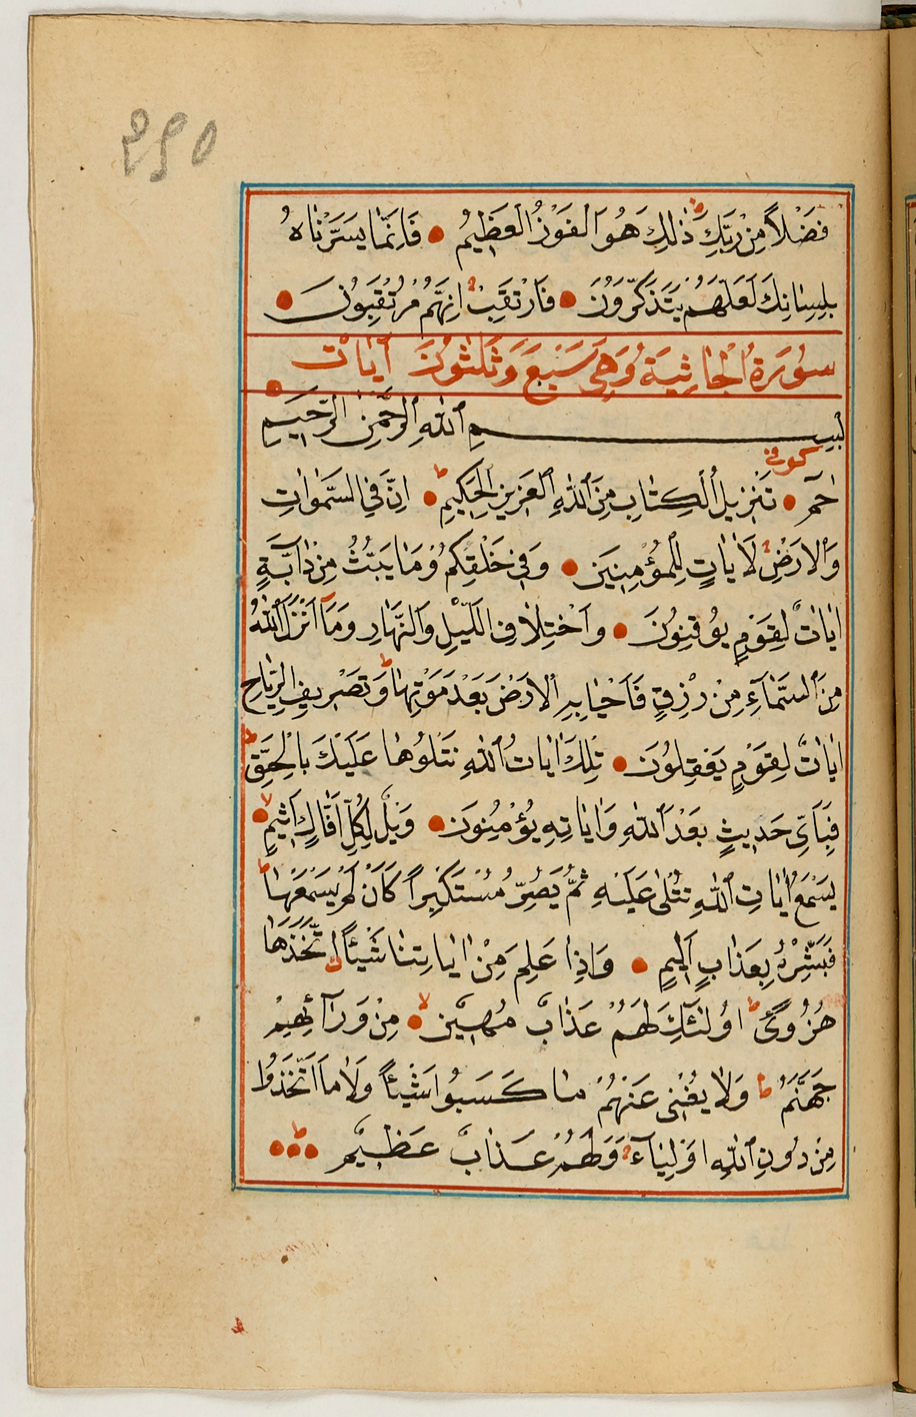 295
فَضْلاً مِنْ رَبِّكَ ذٰلِكَ هُوَ الْفَوْزُ الْعَظِيمُ ● فَاِنَّمَا يَسَّرْنَاهُ
بِلِسَانِكَ لَعَلَّهُمْ يَتَذَكَّرُونَ ● فَارْتَقِبْ اِنَّهُمْ مُرْتَقِبُونَ ●
سُورَةُ الْجَاثِيَةُ وَهِيَ سَبْعَ وَثَلٰثُونَ اٰيَاتْ
بِسْمِ اللّٰهِ الرَّحْمٰنِ الرَّحِيمِ
كوفى
حٰمٓ ● تَنْزِيلُ الْكِتَابِ مِنَ اللّٰهِ الْعَزِيزِ الْحَكِيمِ ● اِنَّ فِي السَّمٰوَاتِ
وَالْاَرْضِ لَاٰيَاتٍ لِلْمُؤْمِنِينَ ● وَفِي خَلْقِكُمْ وَمَا يَبُثُّ مِنْ دَابَّةٍ
اٰيَاتٌ لِقَوْمٍ يُوقِنُونَ ● وَاخْتِلَافِ اللَّيْلِ وَالنَّهَارِ وَمَا اَنْزَلَ اللّٰهُ
مِنَ السَّمَاءِ مِنْ رِزْقٍ فَاَحْيَا بِهِ الْاَرْضَ بَعْدَ مَوْتِهَا وَتَصْرِيفِ الرِّيَاحِ
اٰيَاتٌ لِقَوْمٍ يَعْقِلُونَ ● تِلْكَ اٰيَاتُ اللّٰهِ نَتْلُوهَا عَلَيْكَ بِالْحَقِّ
فَبِاَيِّ حَدِيثٍ بَعْدَ اللّٰهِ وَاٰيَاتِهِ يُؤْمِنُونَ ● وَيْلٌ لِكُلِّ اَفَّاكٍ اَثِيمٍ ●
يَسْمَعُ اٰيَاتِ اللّٰهِ تُتْلٰى عَلَيْهِ ثُمَّ يُصِرُّ مُسْتَكْبِراً كَاَنْ لَمْ يَسْمَعْهَا
فَبَشِّرْهُ بِعَذَابٍ اَلِيمٍ ● وَاِذَا عَلِمَ مِنْ اٰيَاتِنَا شَيْئاً اتَّخَذَهَا
هُزُوًا اُولٰئِكَ لَهُمْ عَذَابٌ مُهِينٌ ● مِنْ وَرَائِهِمْ
جَهَنَّمُ وَلَا يُغْنِي عَنْهُمْ مَا كَسَبُوا شَيْئاً وَلَا مَا اتَّخَذُوا
مِنْ دُونِ اللّٰهِ اَوْلِيَاءَ وَلَهُمْ عَذَابٌ عَظِيمٌ ●●●